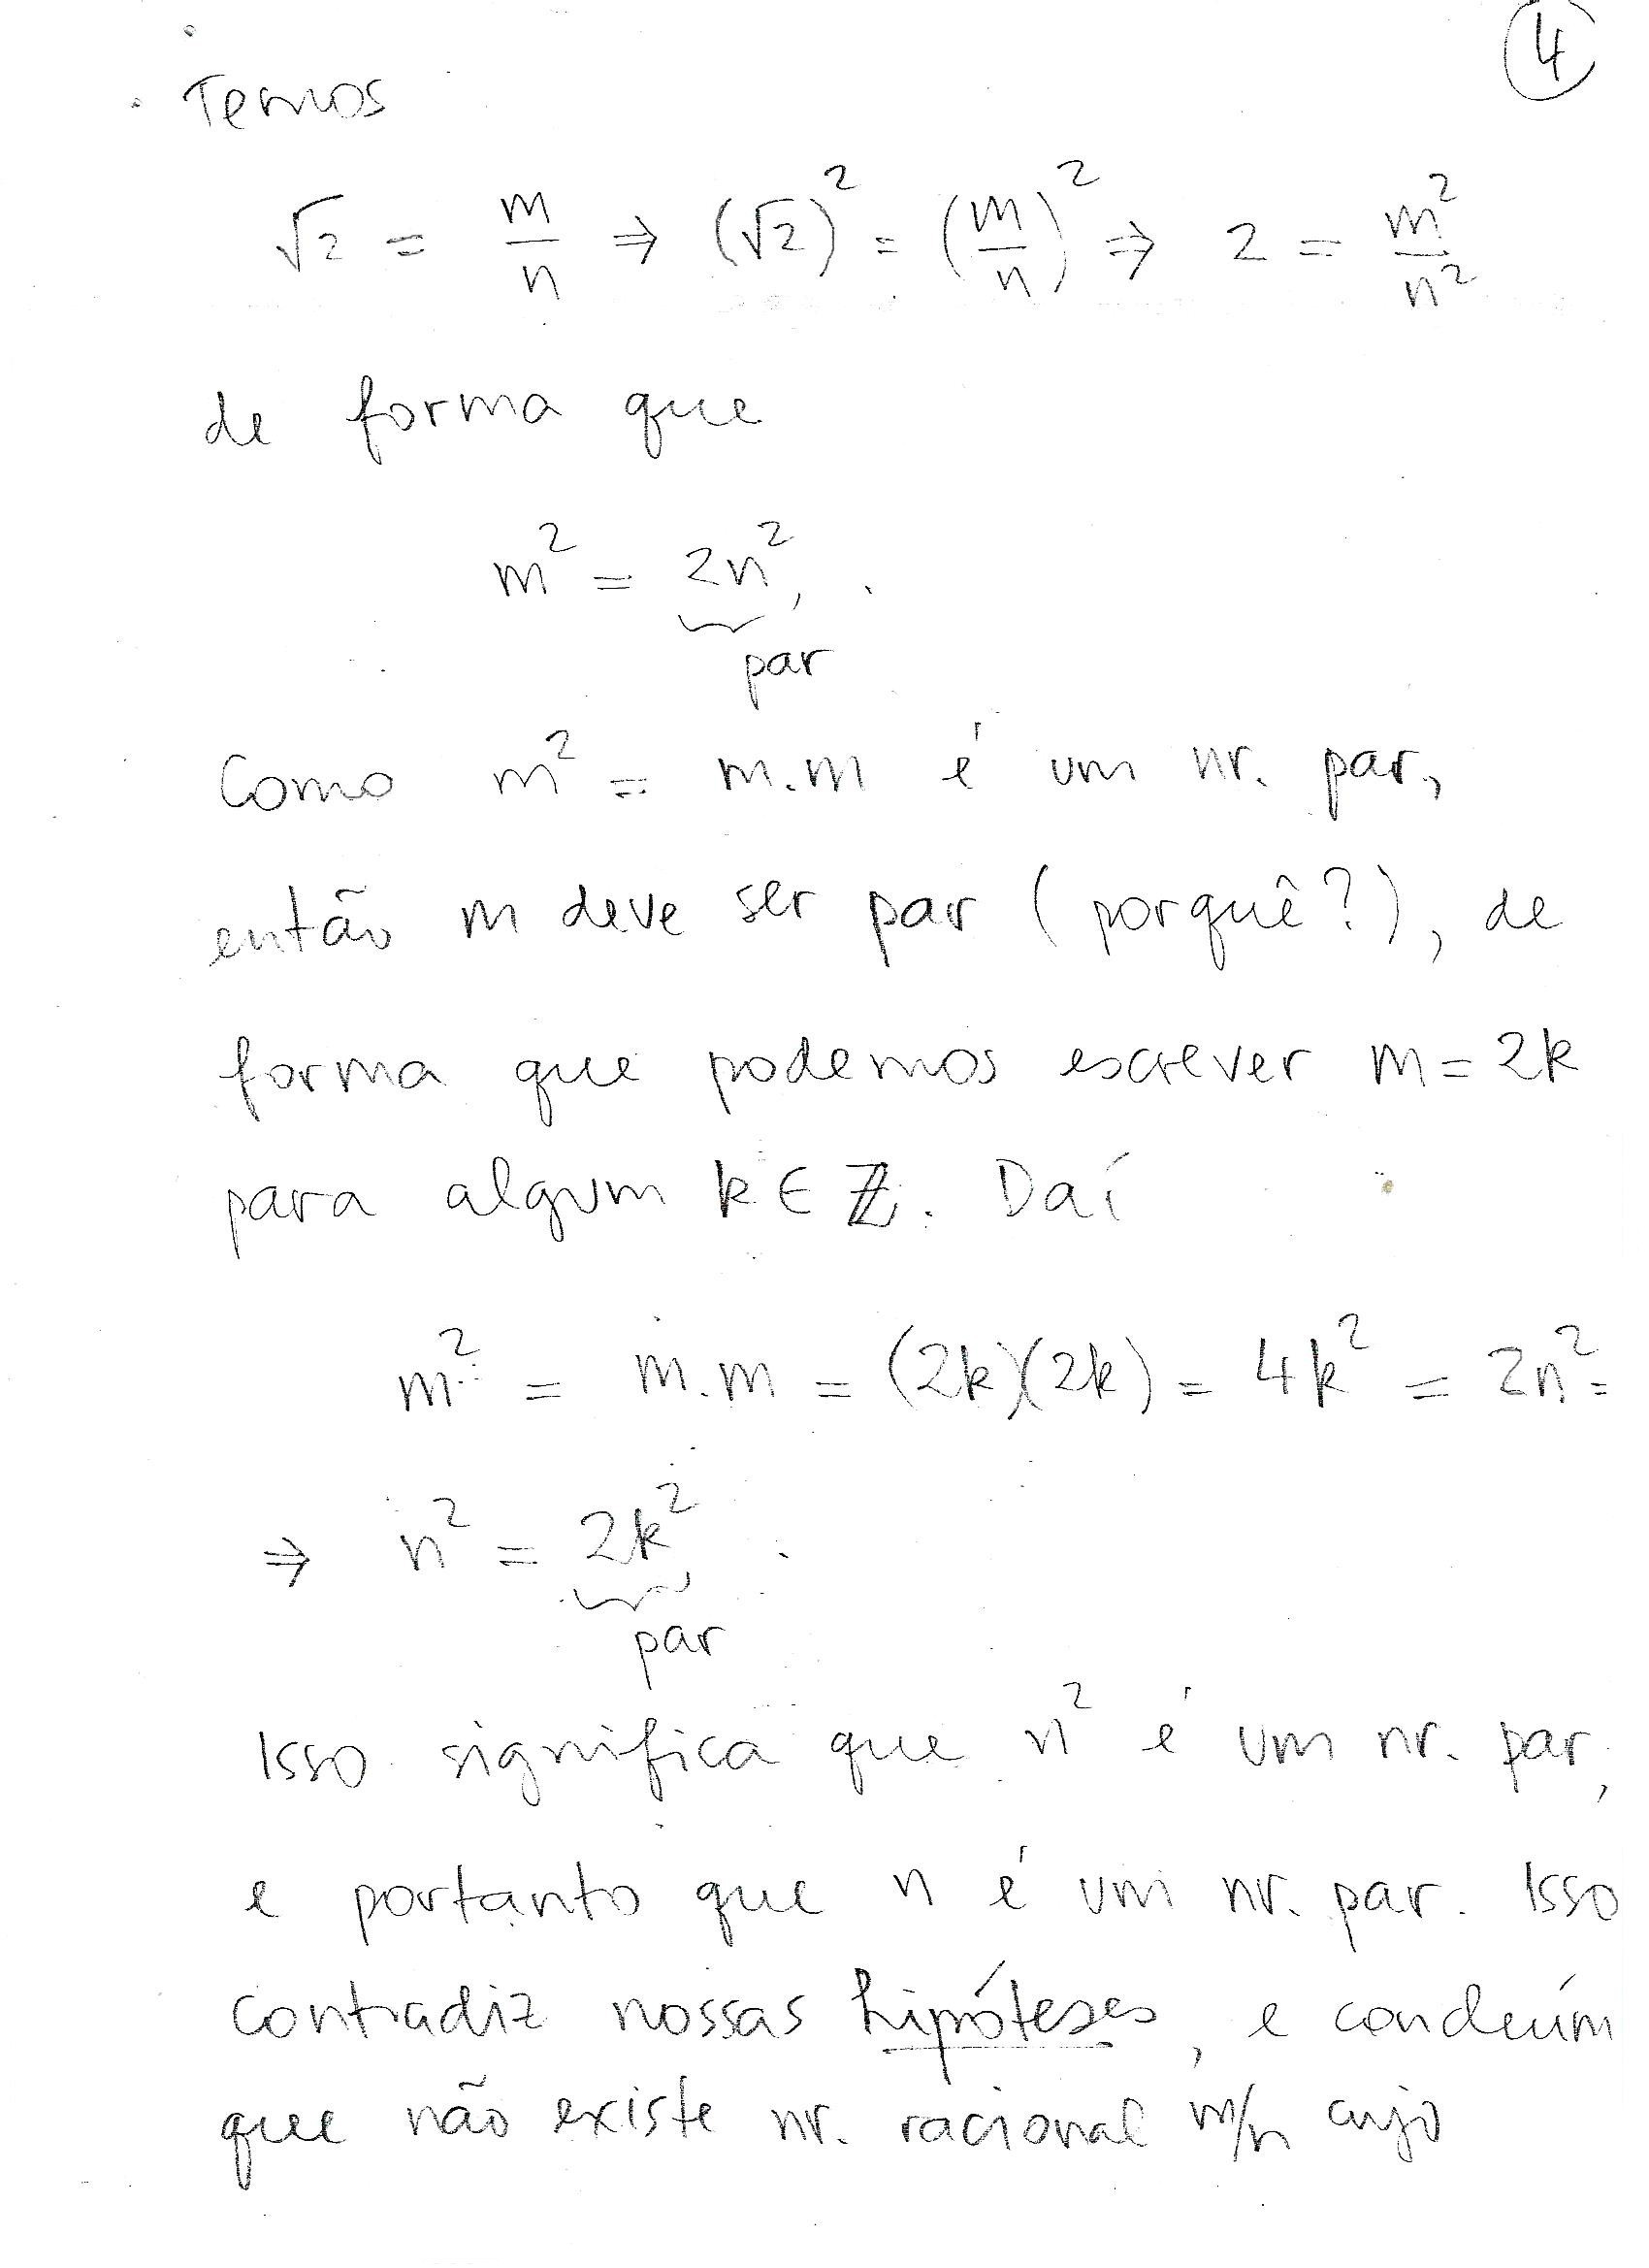 4
Temos
√2 = m/n ⇒ (√2)² = (m/n)² ⇒ 2 = m²/n²
de forma que
m² = 2n²,
par
Como m² = m.m é um nr. par,
então m deve ser par (porquê?), de
forma que podemos escrever m = 2k
para algum k ∈ ℤ. Daí
m² = m.m = (2k)(2k) = 4k² = 2n² =
⇒ n² = 2k²
par
Isso significa que n² é um nr. par,
e portanto que n é um nr. par. Isso
contradiz nossas hipóteses, e concluím
que não existe nr. racional m/n cujo